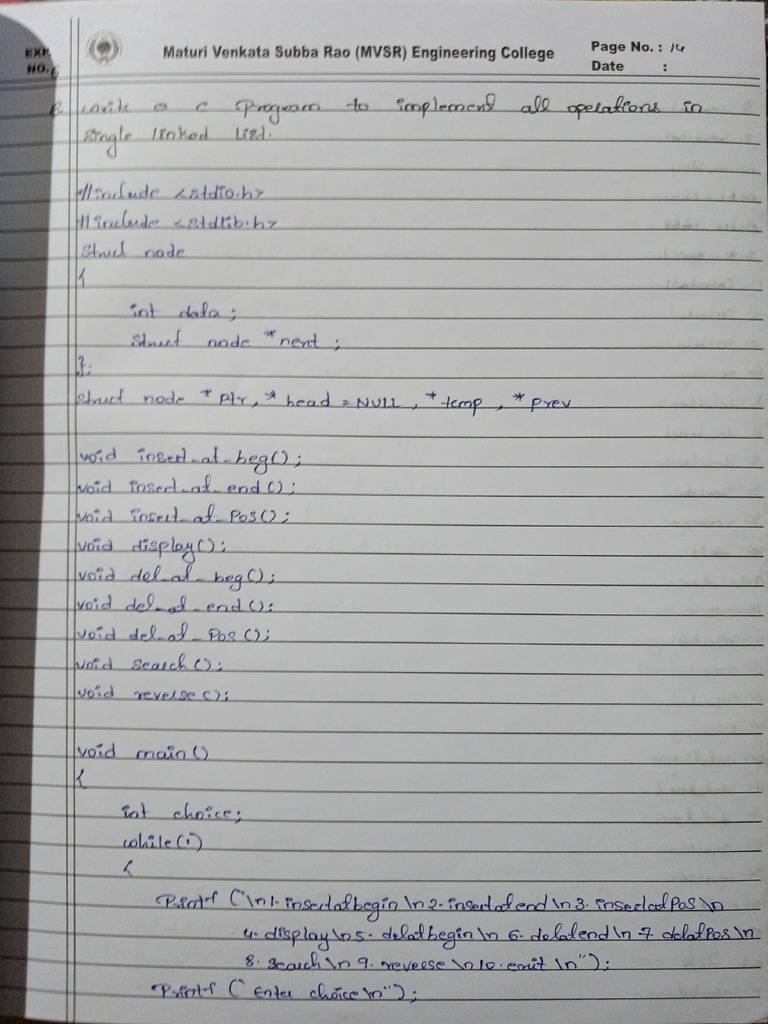 EXP. NO. 6
Maturi Venkata Subba Rao (MVSR) Engineering College
Page No. : 14
Date :
6. write a c Program to implement all operations in
single linked list.
#include <stdio.h>
#include <stdlib.h>
struct node
{
int data ;
struct node *next ;
};
struct node *ptr, *head = NULL, *temp, *prev
void insert_at_beg();
void insert_at_end();
void insert_at_Pos();
void display();
void del_at_beg();
void del_at_end();
void del_at_Pos();
void search();
void reverse();
void main()
{
int choice;
while(1)
{
Printf ("\n1. insertatbegin \n 2. insertatend \n 3. insertatPos \n
4. display \n 5. delatbegin \n 6. delatend \n 7. delatPos \n
8. search \n 9. reverse \n 10. exit \n");
Printf (" Enter choice \n");